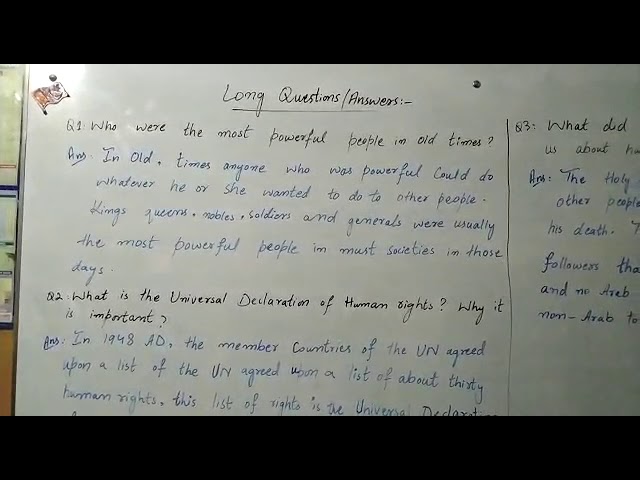 Long Questions/Answers:-
Q1: Who were the most powerful people in old times?
Ans: In Old, times anyone who was powerful Could do
whatever he or she wanted to do to other people.
Kings queens, nobles, soldiers and generals were usually
the most powerful people in must societies in those
days.
Q2: What is the Universal Declaration of Human rights? Why it
is important?
Ans: In 1948 AD, the member Countries of the UN agreed
upon a list of the UN agreed upon a list of about thirty
human rights, this list of rights is the Universal Declaration
Q3: What did
us about hu
Ans: The Holy
other people
his death.
followers tha
and no Arab
non-Arab to